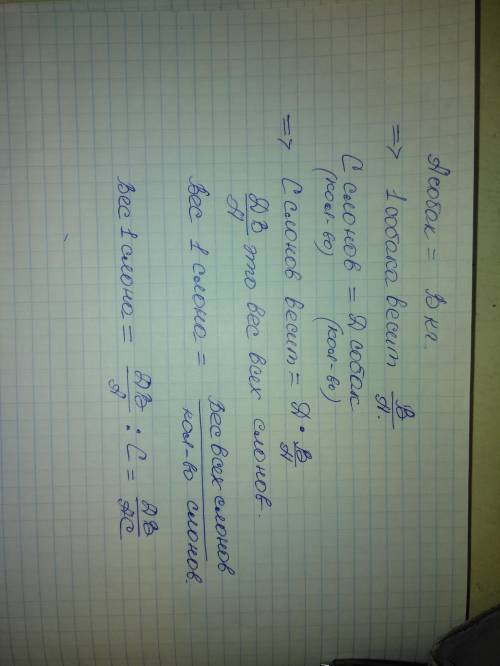 А собак = В кг.
=> 1 собака весит В/А.
С слонов = Д собак
(кол-во) (кол-во)
=> С слонов весит = Д · В/А
ДВ/А это вес всех слонов.
Вес 1 слона = Вес всех слонов / кол-во слонов.
Вес 1 слона = ДВ/А : С = ДВ/АС